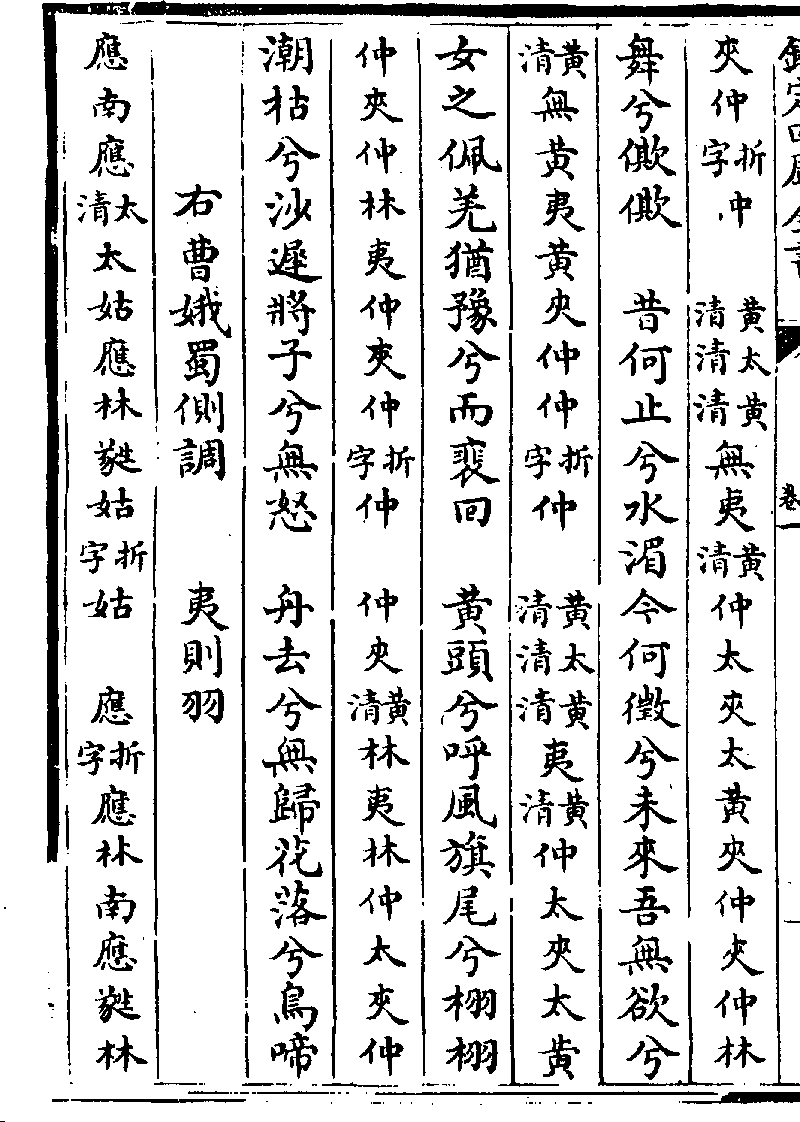 欽定四庫全書 卷
夾仲折字仲 黄清太清黄清無夷黄清仲太夾太黄夾仲夾仲林
舞兮僛僛 昔何止兮水湄今何徵兮未來吾無欲兮
黄清無黄夷黄夾仲仲折字仲 黄清太清黄清夷黄清仲太夾太黄
女之佩羌猶豫兮而裵回 黄頭兮呼風旗尾兮栩栩
仲夾仲林夷仲夾仲折字仲 仲夾黄清林夷林仲太夾仲
潮枯兮沙遲將子兮無怒 舟去兮無歸花落兮鳥啼
右曹娥蜀側調 夷則羽
應南應太清太姑應林蕤姑折字姑 應折字應林南應蕤林